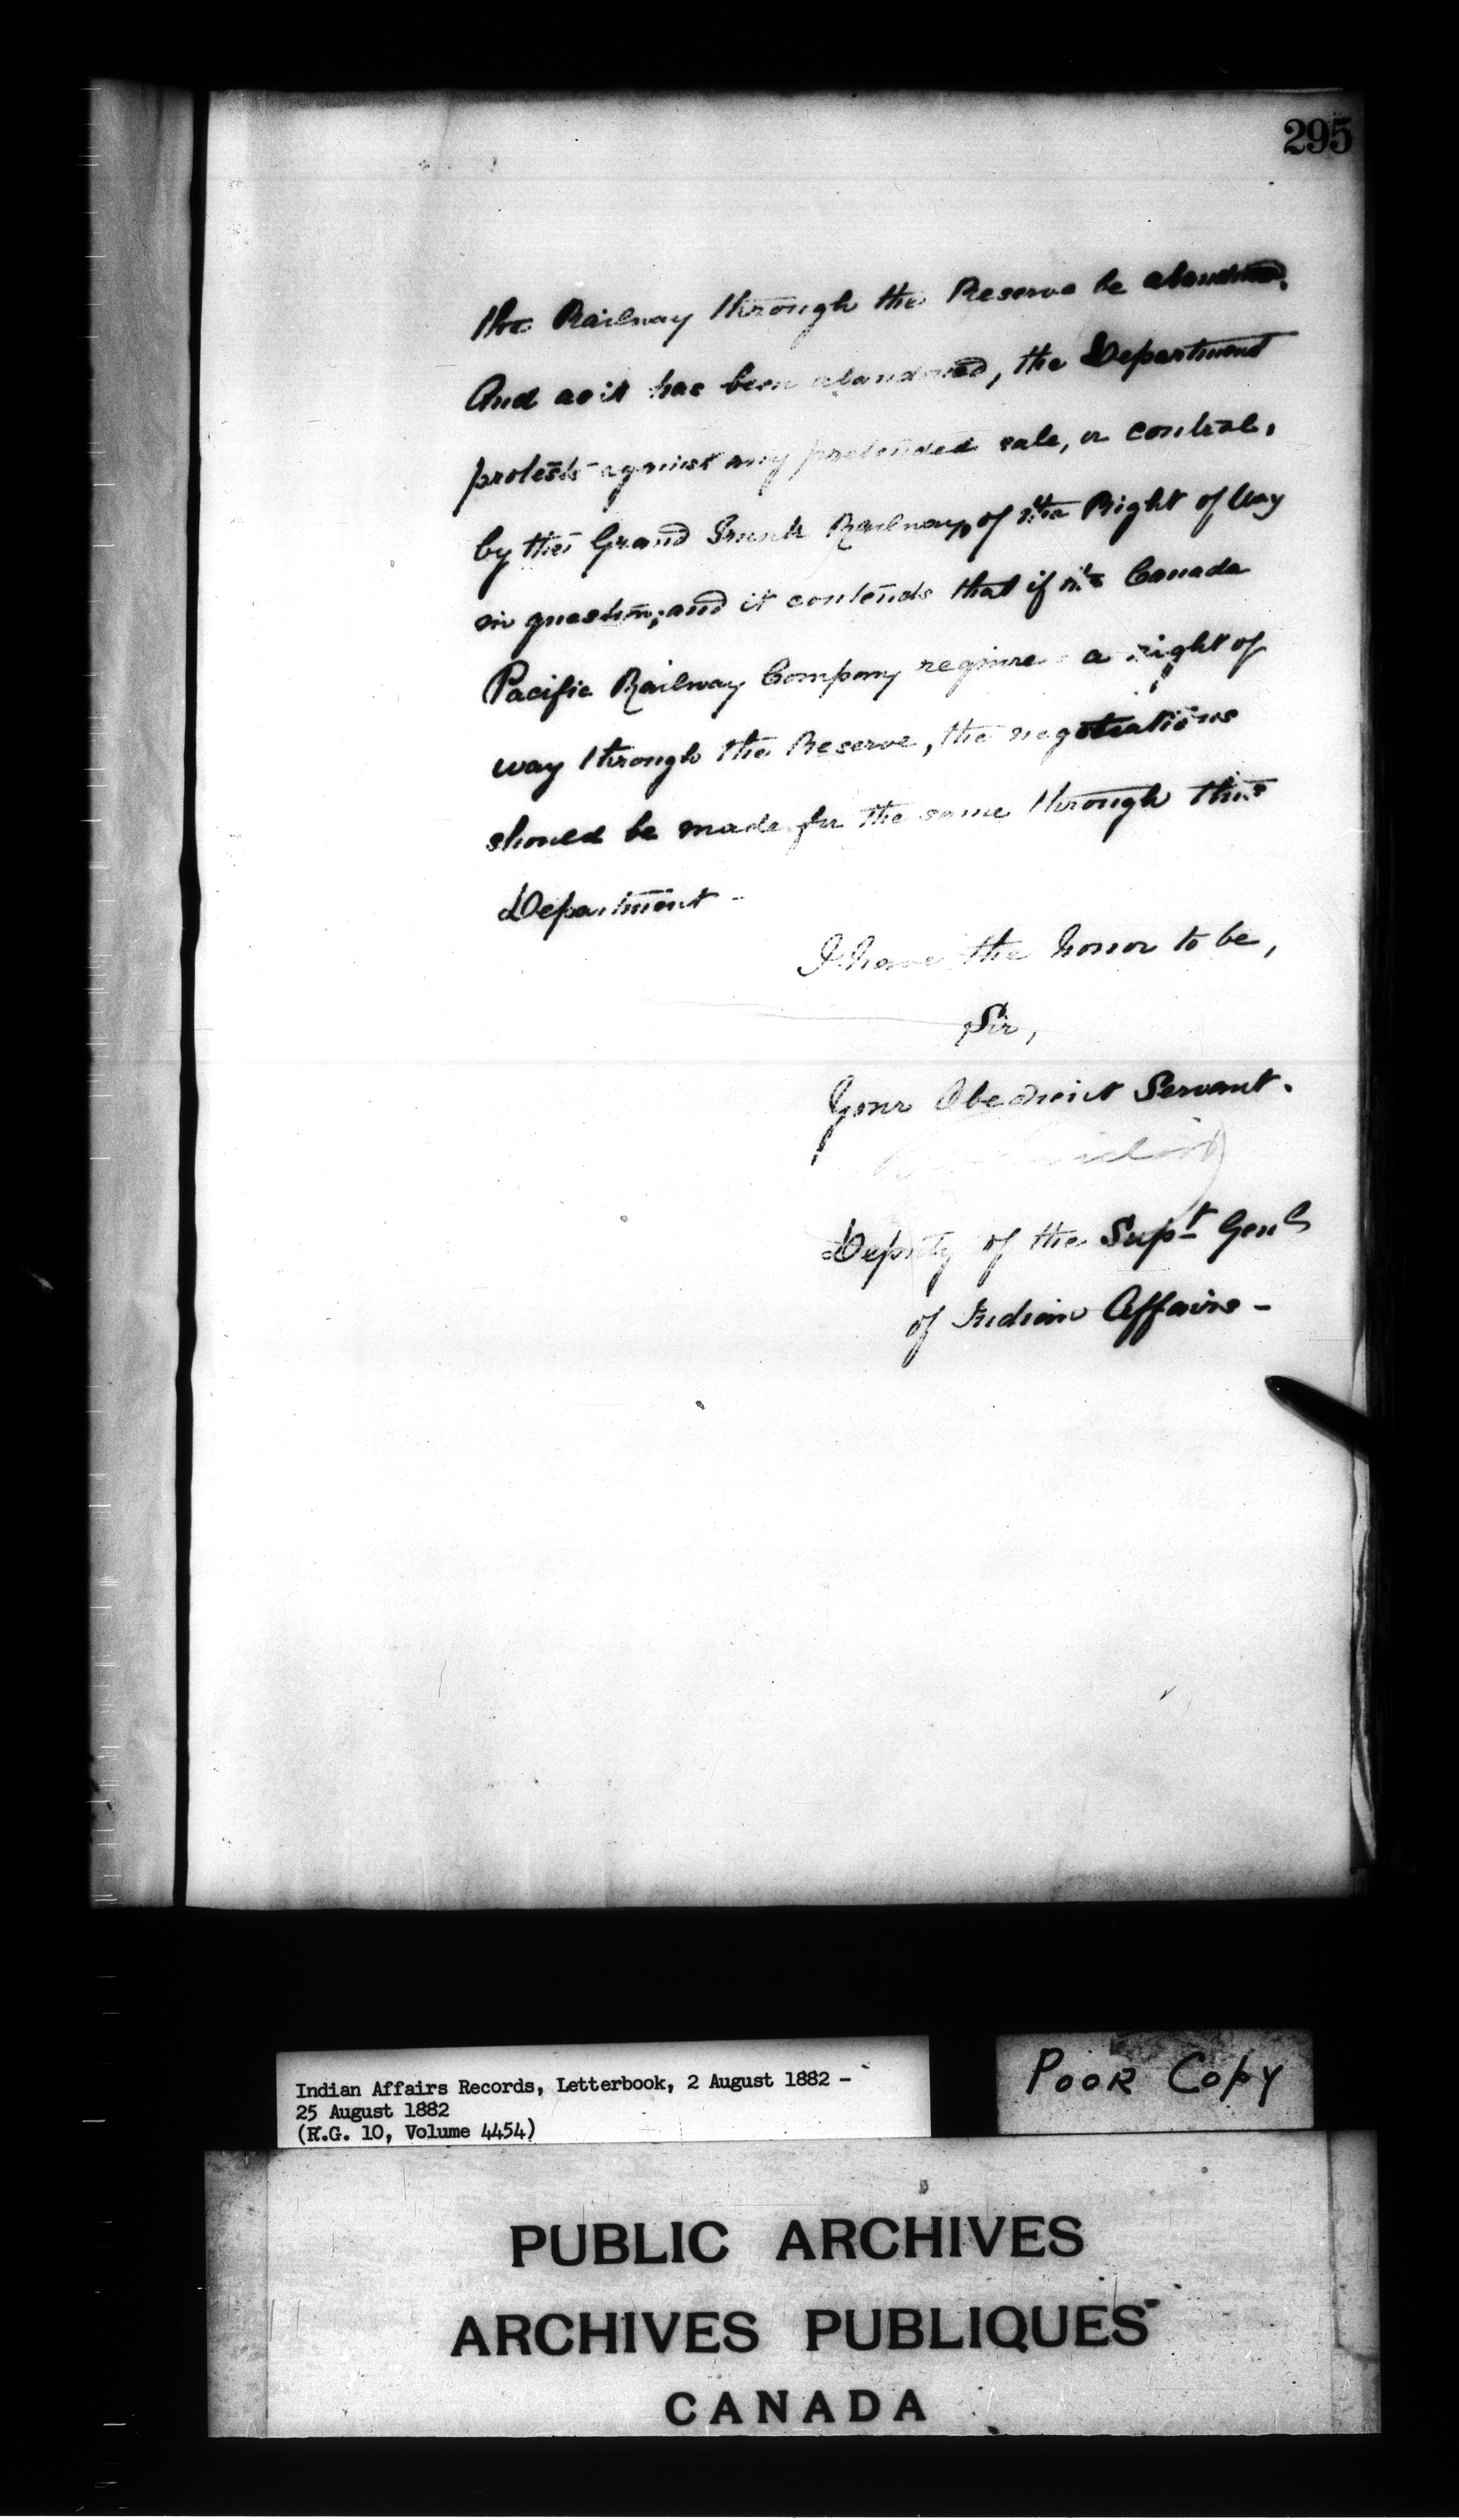 295
the Railway through the Reserve be abandoned.
And as it has been abandoned, the Department
protests against any pretended sale, or control,
by the Grand Trunk Railway, of the Right of Way
in question; and it contends that if the Canada
Pacific Railway Company require a right of
way through the Reserve, the negotiations
should be made for the same through this
Department -
I have the honor to be,
Sir,
Your Obedient Servant.
Deputy of the Supt Genl
of Indian Affairs -
Indian Affairs Records, Letterbook, 2 August 1882 -
25 August 1882
(R.G. 10, Volume 4454)
POOR COPY
PUBLIC ARCHIVES
ARCHIVES PUBLIQUES
CANADA